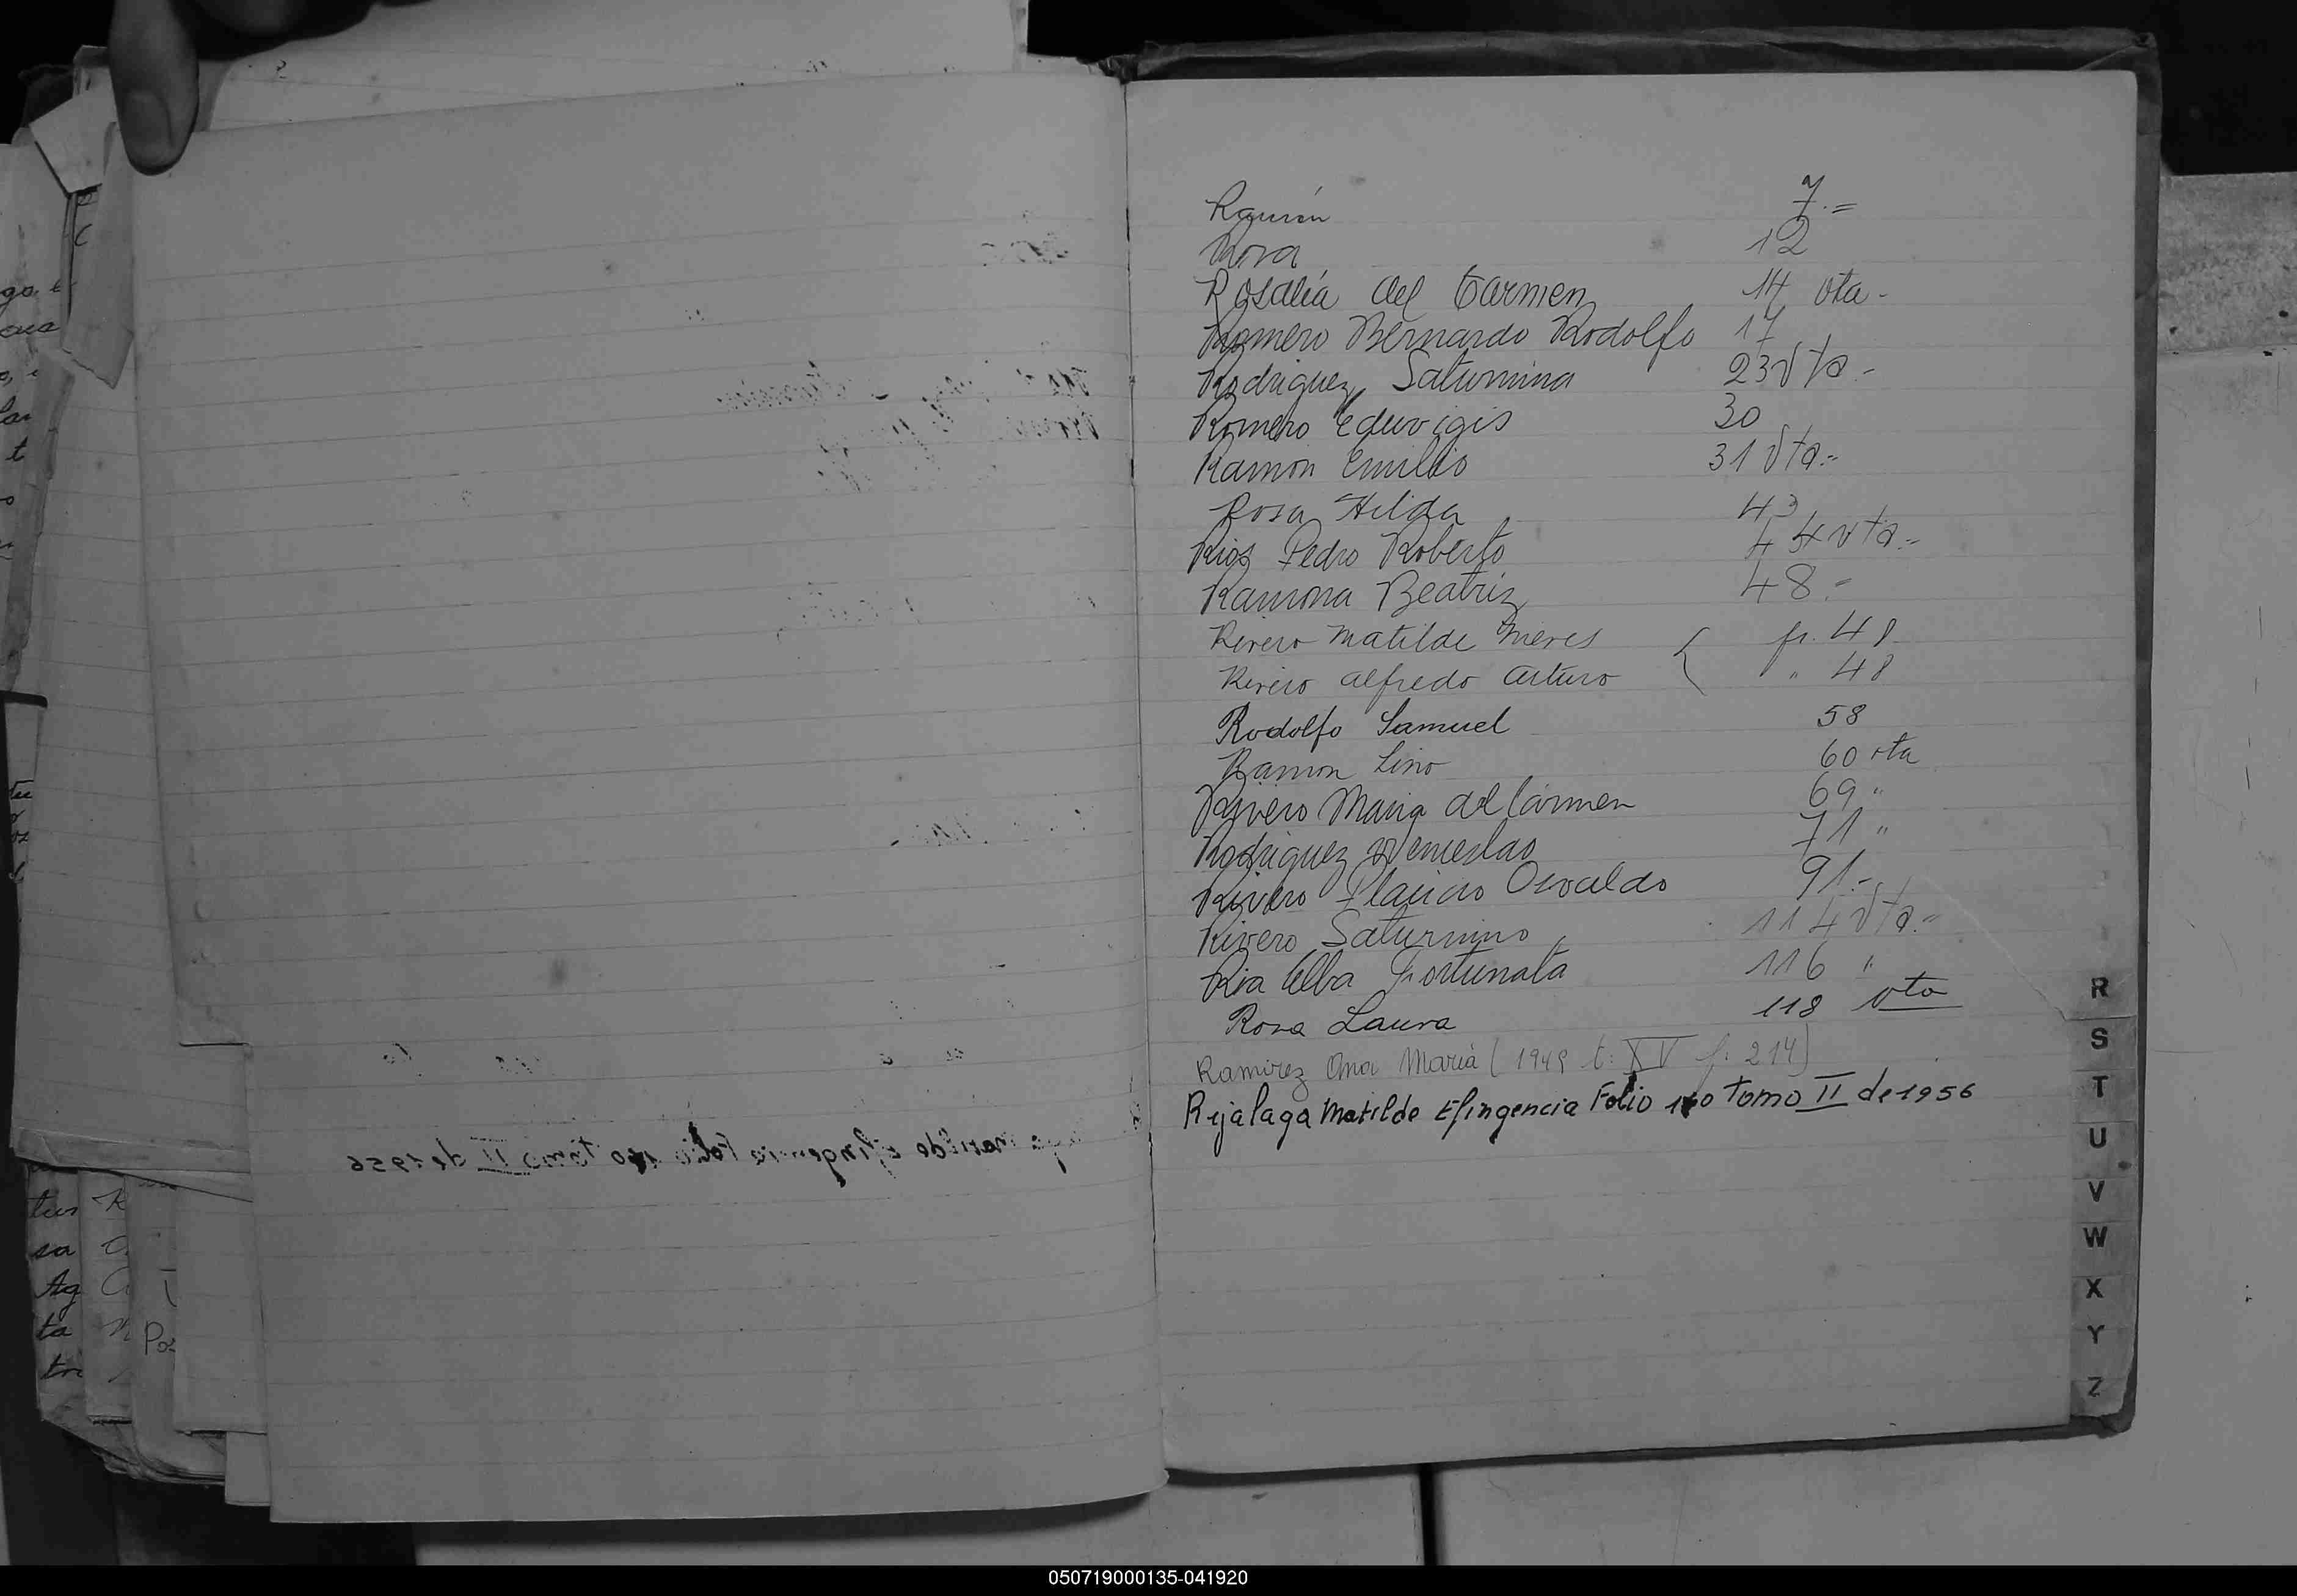 Ramón 7.=
Rosa 12
Rosalía del Carmen 14 vta-
Romero Bernardo Rodolfo 17
Rodriguez, Saturnina 23 vta.-
Romero Eduvigis 30
Ramón Emilio 31 vta.-
Rosa Hilda 43
Rios Pedro Roberto 44 vta.-
Ramona Beatriz 48.-
Rivero Matilde Nieves { fs. 48
Rivero Alfredo Arturo " 48
Rodolfo Samuel 58
Ramon Lino 60 vta
Rivero Maria del Carmen 69 "
Rodriguez Wenceslao 71 "
Rivero Placido Osvaldo 91.-
Rivero Saturnino 114 vta.-
Ria Elba Fortunata 116 "
Rosa Laura 118 vta
Ramirez Ana María (1949 t: XV f: 214)
Rejalaga Matilde Efingencia Folio 170 Tomo II de 1956
R
S
T
U
V
W
X
Y
Z
tus
sa
Ag
ta
Pos
050719000135-041920